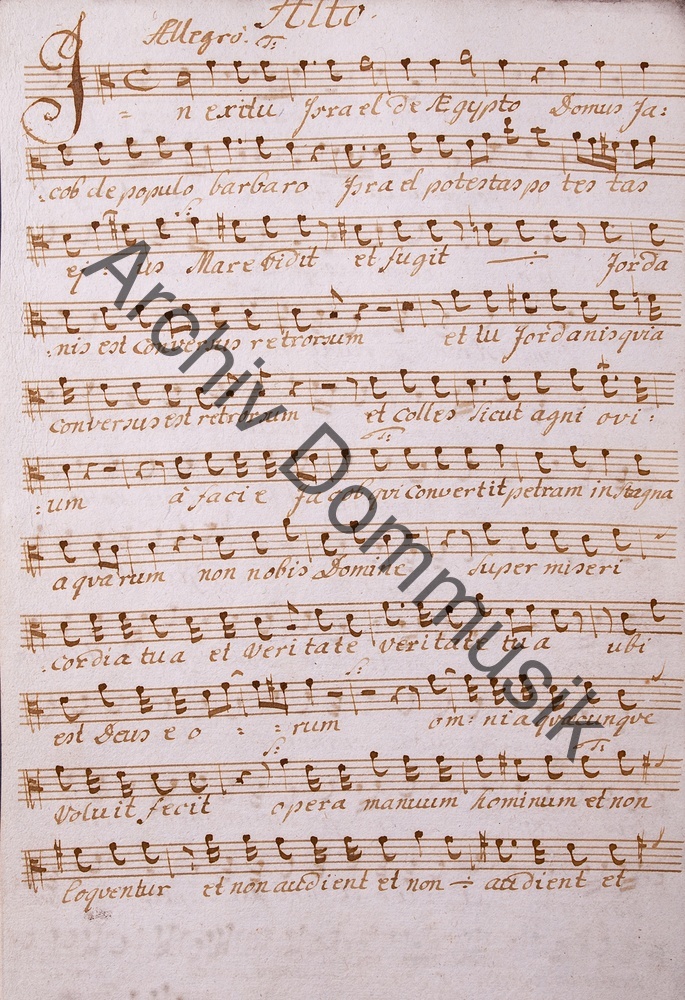 Alto.
Allegro. T:
In exitu Israel de Ægypto Domus Ja:
:cob de populo barbaro Israel potestas po tes tas
ej : us Mare vidit et fugit Jorda
:nis est conversus retrorsum et tu Jordanis quia
conversus est retrorsum et colles sicut agni ovi:
T:
:um à facie Jacob qui convertit petram in stagna
aquarum non nobis Domine super miseri
:cordia tua et veritate veritate tua ubi
S:
est Deus eo : : rum om: nia quacunque
S: T:
Voluit fecit opera manuum hominum et non
loquentur et non audient et non audient et
Archiv Dommusik